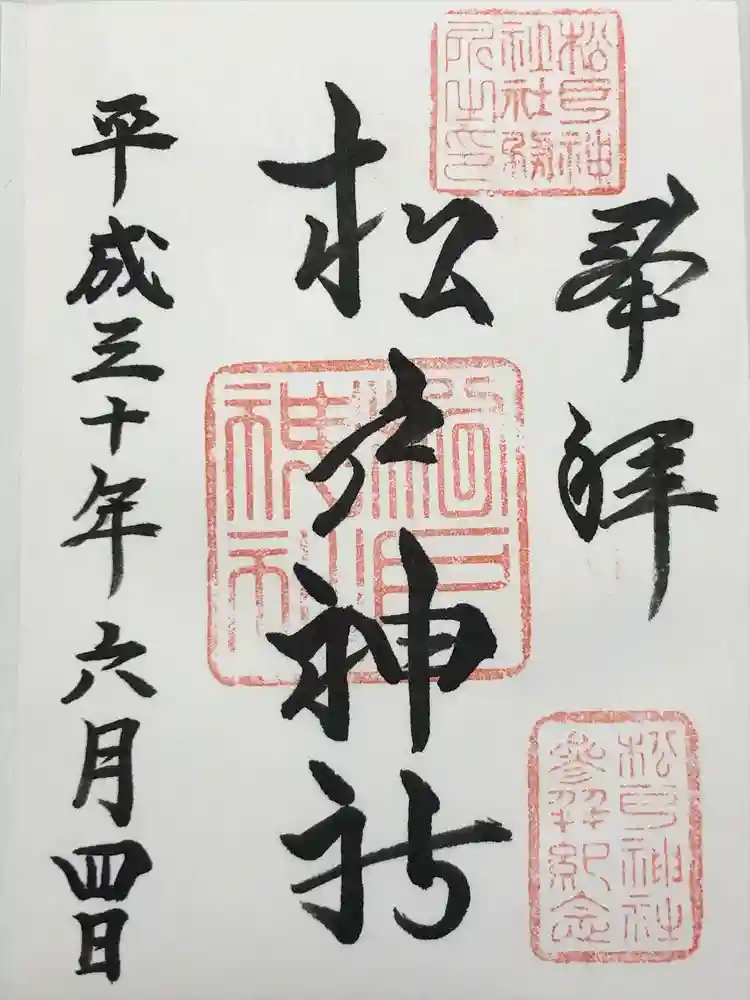 奉拝
松戸神社
平成三十年六月四日
松戸神社社務所之印
松戸神社
松戸神社参拝紀念